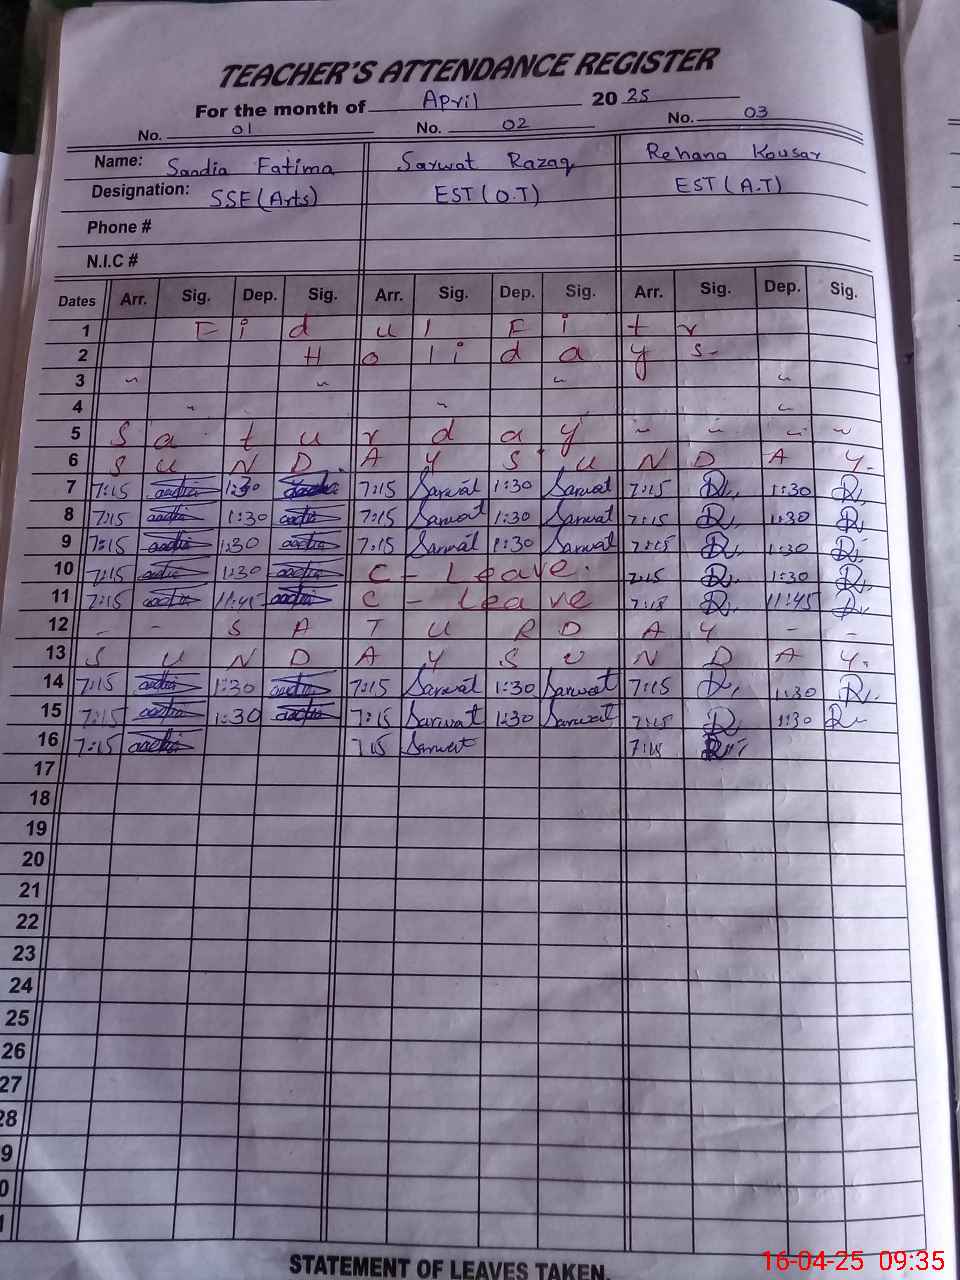 TEACHER'S ATTENDANCE REGISTER
For the month of April 2025
No. 01 No. 02 No. 03
Name: Saadia Fatima Sarwat Razaq Rehana Kousar
Designation: SSE (Arts) EST (O.T) EST (A.T)
Phone #
N.I.C #
Dates Arr. Sig. Dep. Sig. Arr. Sig. Dep. Sig. Arr. Sig. Dep. Sig.
1 Eid ul Fitr
2 Holidays
3
4
5 Saturday
6 SUNDAY SUNDAY
7 7:15 1:30 7:15 Sarwat 1:30 Sarwat 7:15 1:30
8 7:15 1:30 7:15 Sarwat 1:30 Sarwat 7:15 1:30
9 7:15 1:30 7:15 Sarwat 1:30 Sarwat 7:15 1:30
10 7:15 1:30 C - Leave 7:15 1:30
11 7:15 11:45 C - Leave 11:45
12 SATURDAY
13 SUNDAY SUNDAY
14 7:15 1:30 7:15 Sarwat 1:30 Sarwat 7:15 1:30
15 7:15 1:30 7:15 Sarwat 1:30 Sarwat 7:15 1:30
16 7:15 7:15 Sarwat
17
18
19
20
21
22
23
24
25
26
27
28
9
0
1
STATEMENT OF LEAVES TAKEN.
16-04-25 09:35